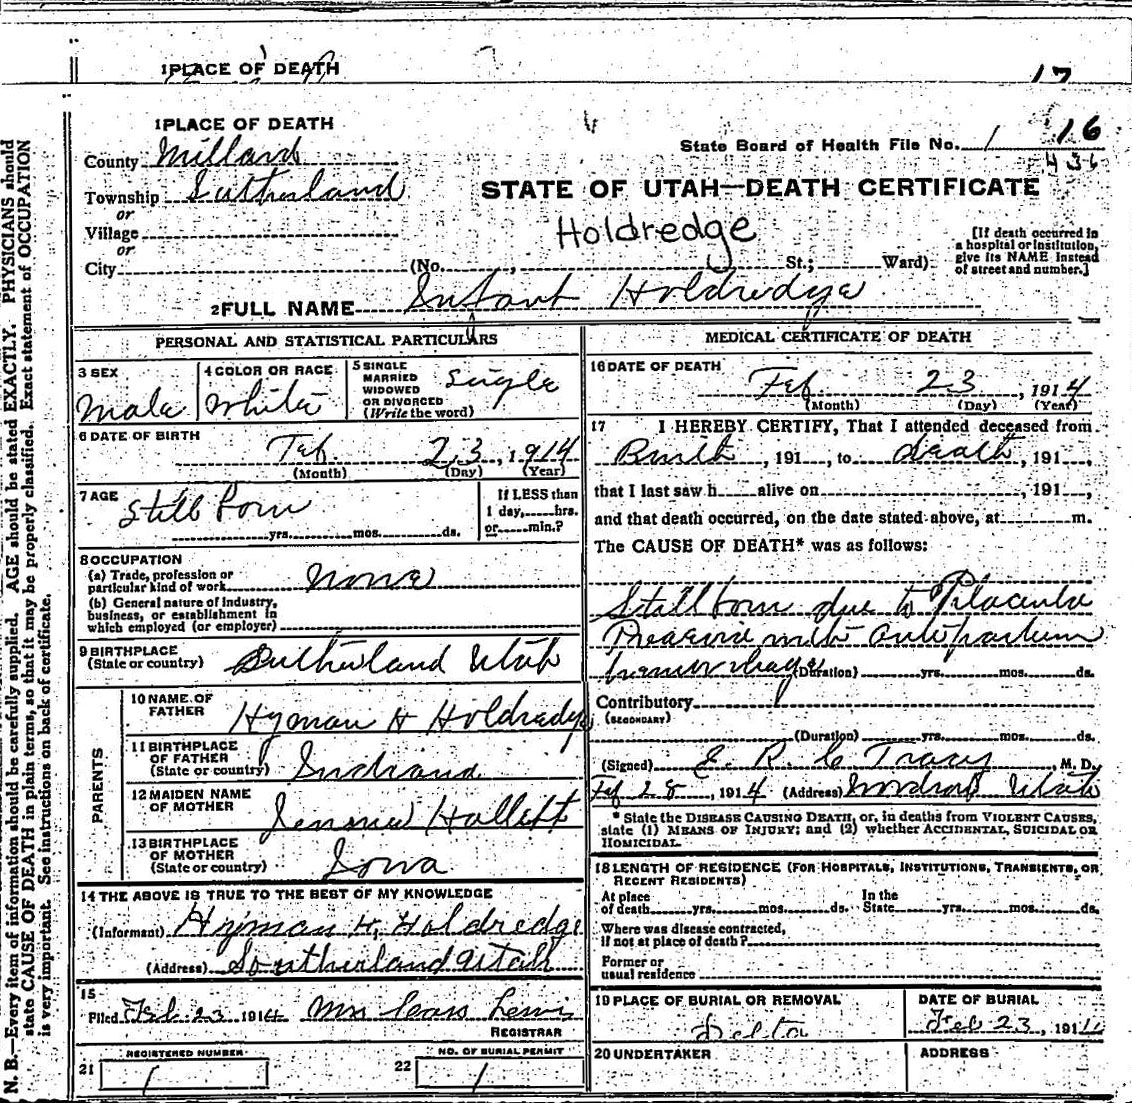 1PLACE OF DEATH
17
1PLACE OF DEATH
County Millard
State Board of Health File No. 1 16
436
Township Sutherland
STATE OF UTAH—DEATH CERTIFICATE
or
Village
Holdredge
or
City (No. , St.; Ward)
[If death occurred in
a hospital or institution,
give its NAME instead
of street and number.]
2FULL NAME Infant Holdredge
PERSONAL AND STATISTICAL PARTICULARS
3 SEX
Male
4 COLOR OR RACE
White
5 SINGLE
MARRIED
WIDOWED
OR DIVORCED
(Write the word)
Single
6 DATE OF BIRTH
Feb. 23, 1914
(Month) (Day) (Year)
7 AGE
Still born
yrs. mos. ds.
If LESS than
1 day, hrs.
or min.?
8 OCCUPATION
(a) Trade, profession or
particular kind of work None
(b) General nature of industry,
business, or establishment in
which employed (or employer)
9 BIRTHPLACE
(State or country) Sutherland Utah
PARENTS
10 NAME OF
FATHER Hyman H Holdredge
11 BIRTHPLACE
OF FATHER
(State or country) Indiana
12 MAIDEN NAME
OF MOTHER Jennie Hallett
13 BIRTHPLACE
OF MOTHER
(State or country) Iowa
14 THE ABOVE IS TRUE TO THE BEST OF MY KNOWLEDGE
(Informant) Hyman H. Holdredge
(Address) Southerland Utah
15
Filed Feb 23 1914 Mrs Lewis
REGISTRAR
21 REGISTERED NUMBER
1
22 NO. OF BURIAL PERMIT
1
MEDICAL CERTIFICATE OF DEATH
16 DATE OF DEATH
Feb 23, 1914
(Month) (Day) (Year)
17 I HEREBY CERTIFY, That I attended deceased from
Birth, 191 , to death, 191 ,
that I last saw h alive on , 191 ,
and that death occurred, on the date stated above, at m.
The CAUSE OF DEATH* was as follows:
Stillborn due to Placenta
Preavia with antepartum
hemorrhage (Duration) yrs. mos. ds.
Contributory
(SECONDARY)
(Duration) yrs. mos. ds.
(Signed) E. R. C Tracy, M. D.
Feb 28, 1914 (Address) Woodrow Utah
* State the DISEASE CAUSING DEATH, or, in deaths from VIOLENT CAUSES,
state (1) MEANS OF INJURY; and (2) whether ACCIDENTAL, SUICIDAL OR
HOMICIDAL.
18 LENGTH OF RESIDENCE (FOR HOSPITALS, INSTITUTIONS, TRANSIENTS, OR
RECENT RESIDENTS)
At place In the
of death yrs. mos. ds. State yrs. mos. ds.
Where was disease contracted,
if not at place of death?
Former or
usual residence
19 PLACE OF BURIAL OR REMOVAL
Delta
DATE OF BURIAL
Feb 23, 1914
20 UNDERTAKER
ADDRESS
N. B.—Every item of information should be carefully supplied. AGE should be stated EXACTLY. PHYSICIANS should
state CAUSE OF DEATH in plain terms, so that it may be properly classified. Exact statement of OCCUPATION
is very important. See instructions on back of certificate.